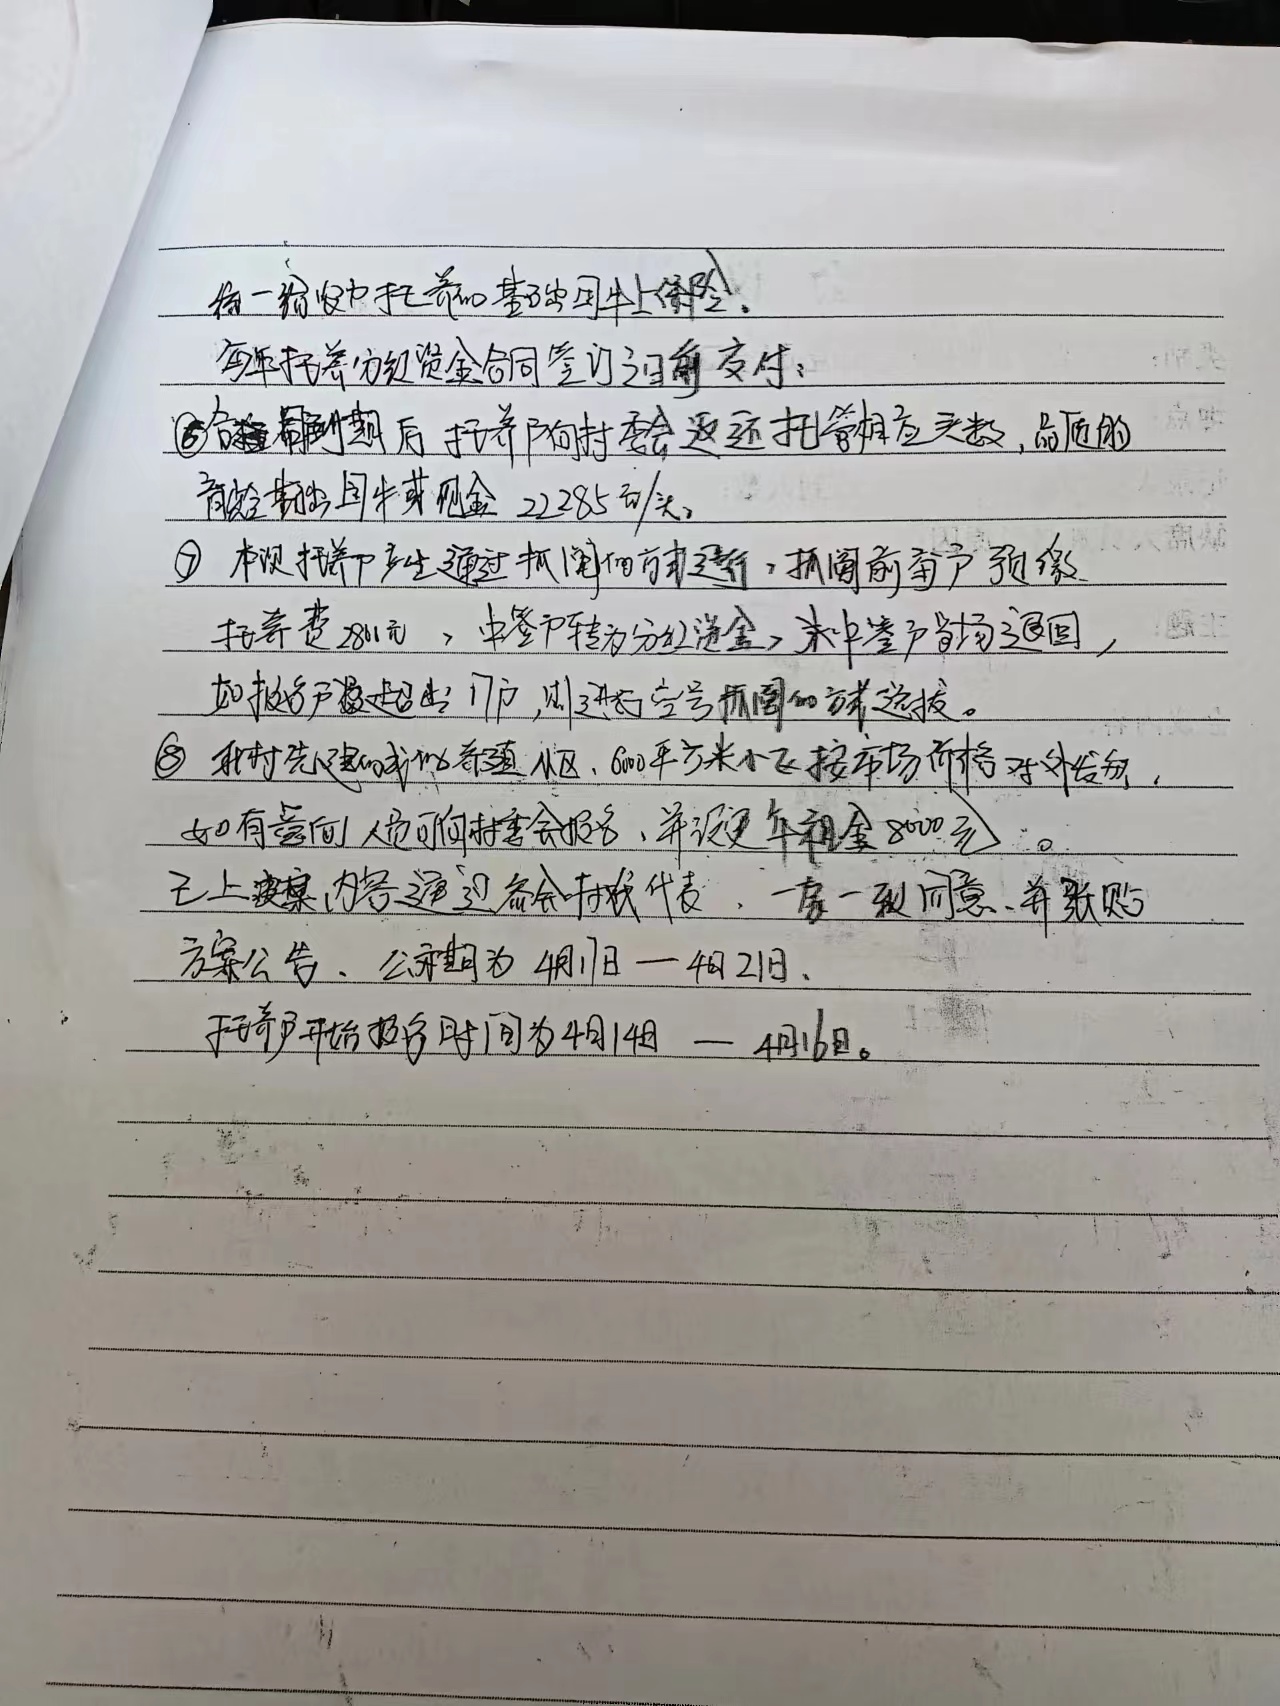 统一给收中托养的基础母牛上保险。
每年托养分红资金合同签订之日前交付;
⑥合同到期后托养户向村委会返还托管相应头数,品质的
育龄基础母牛或现金22285元/头。
⑦ 本次托养户产生通过抓阄的方式进行,抓阄前每户预缴
托养费2811元,中签户转为分红资金,未中签户当场退回,
如报名户数超出17户,则进行空号抓阄的方式选拔。
⑧ 我村先建的养殖小区,6000平方米小区按市场价格对外发包,
如有意向人员可向村委会报名、并议定年租金8000元。
已上方案内容通过参会村民代表、一致同意、并张贴
方案公告、公示期为4月17日—4月21日、
托养户开始报名时间为4月14日 — 4月16日。